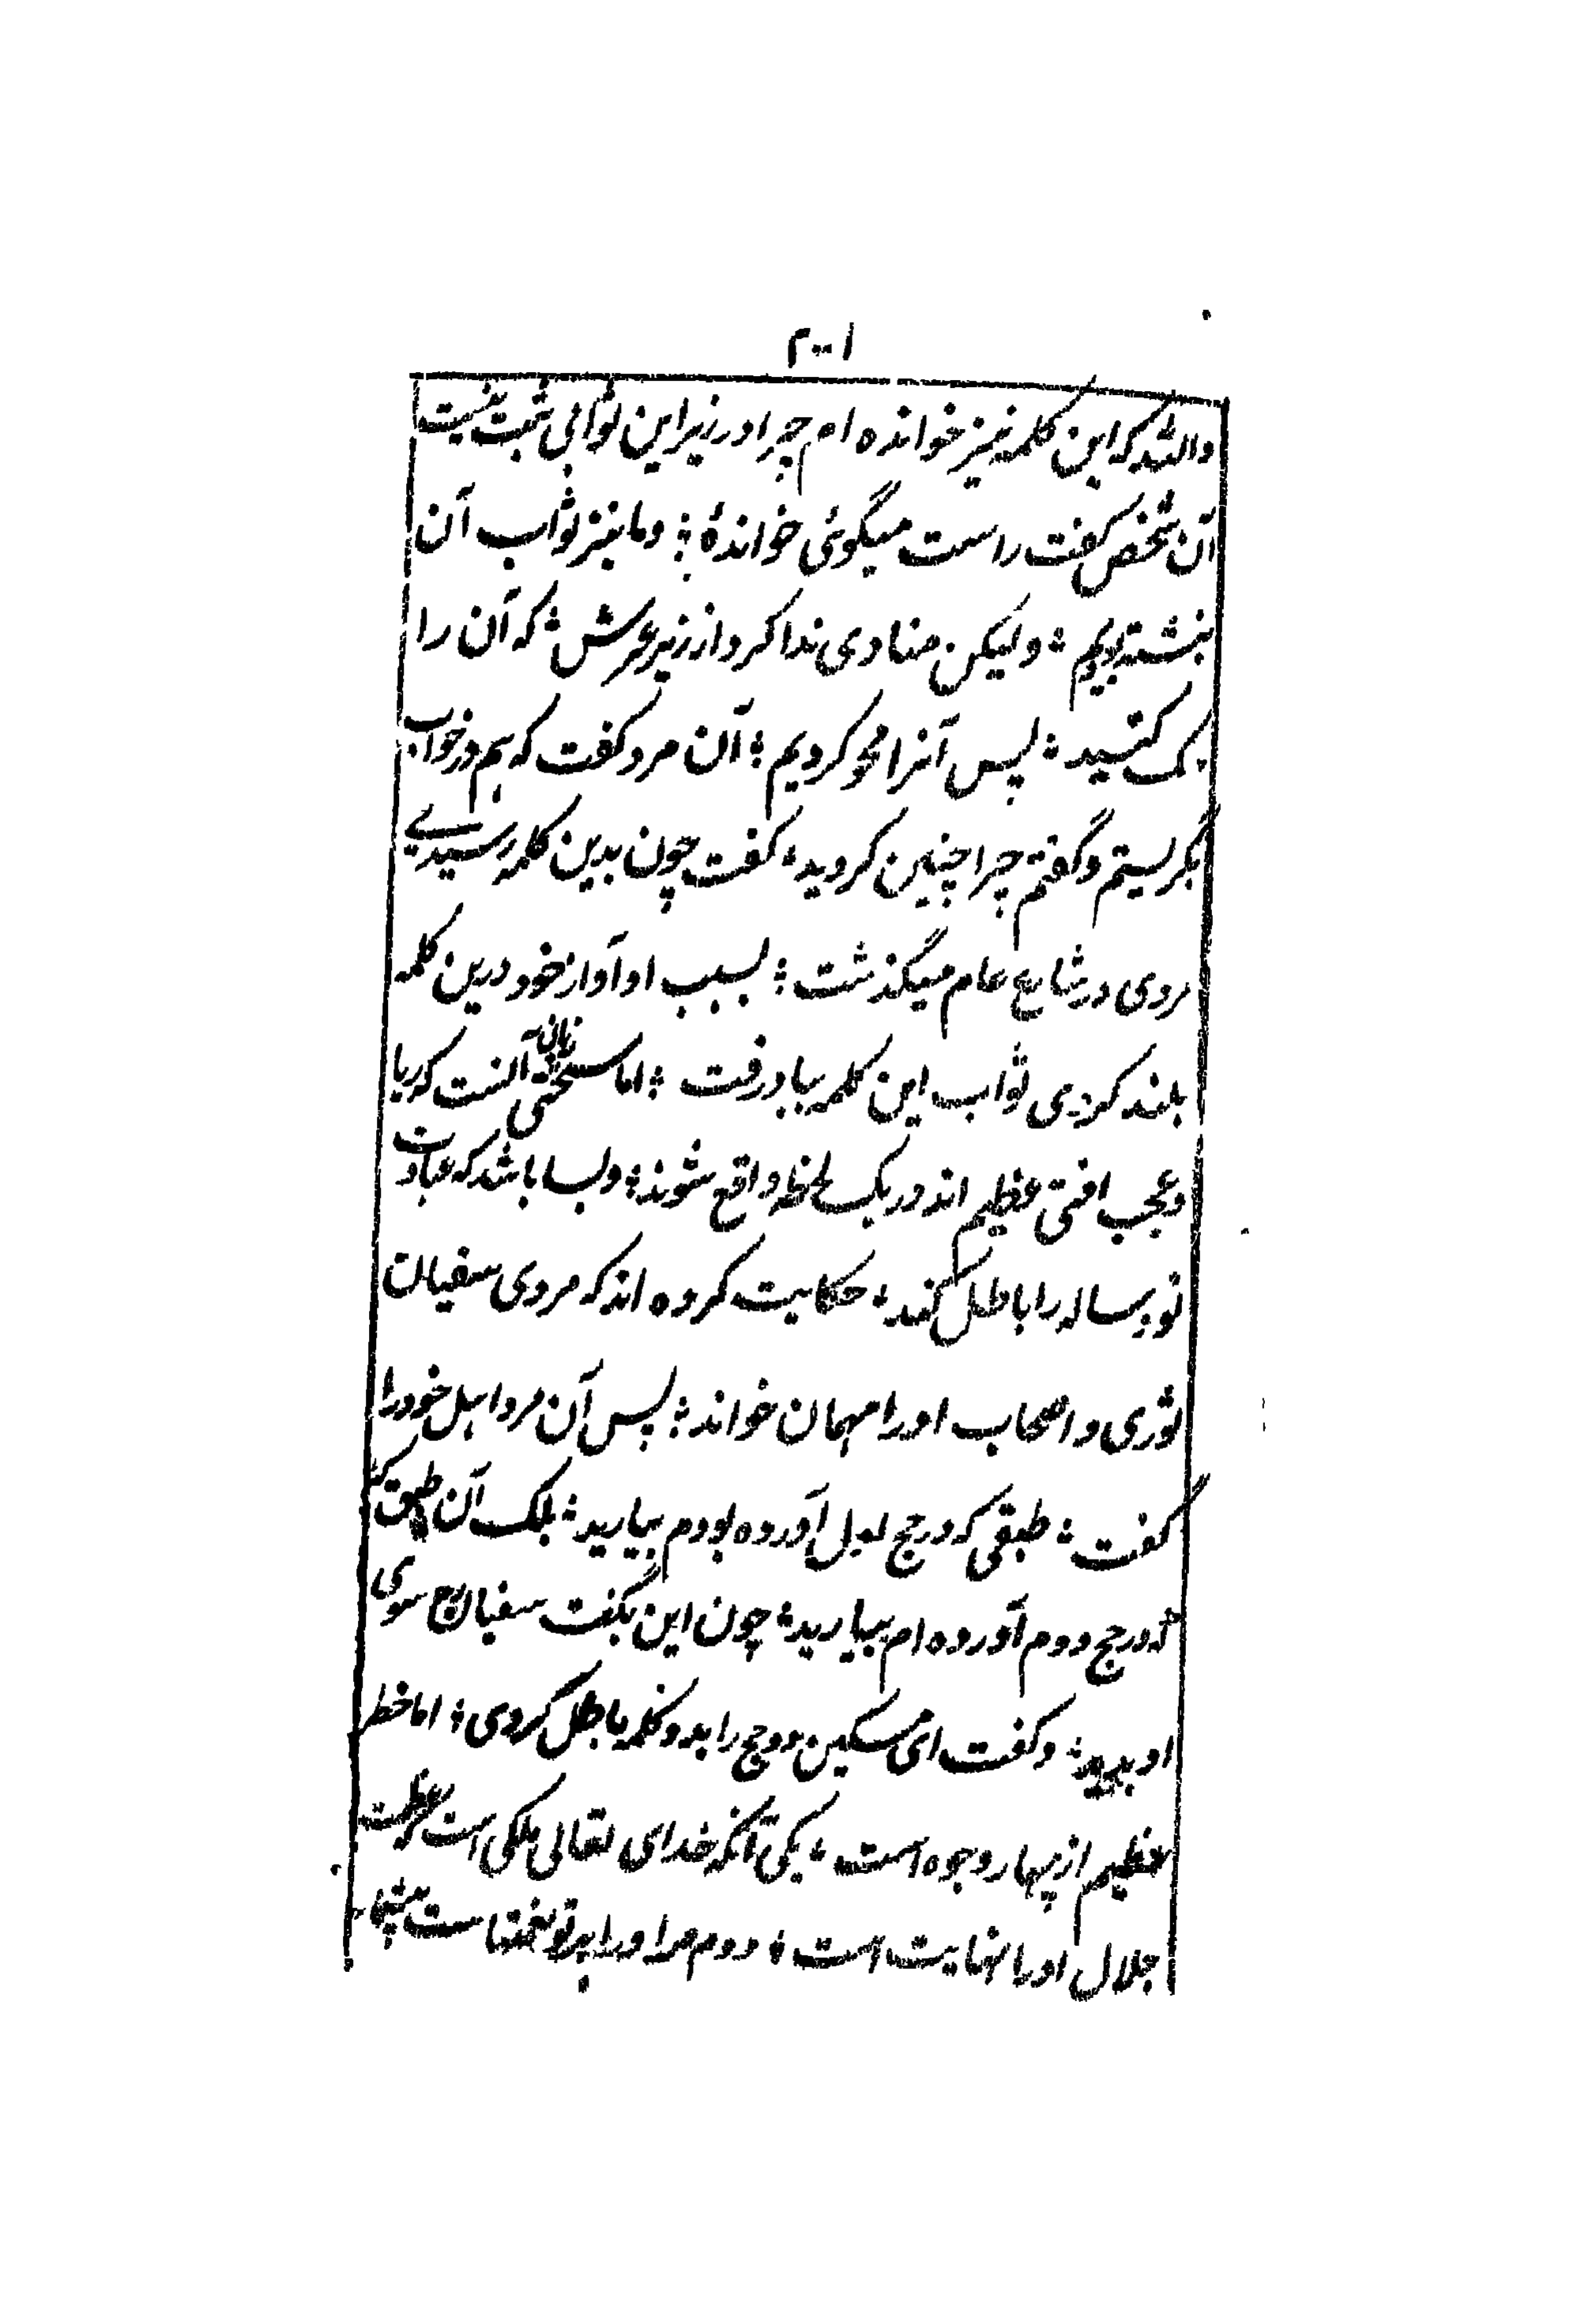 ۲۰۰۱
والله که این کلمه نیز خوانده ام چرا در زیر این ثوابی ثبت نیست
آن شخص گفت راست میگوئی خواندهٔ ؛ وما نیز ثواب آن
بنشته بودیم ؛ ولیکن منادی ندا کرد از زیر عرش ؛ که آن را
حک کنید ؛ پس آنرا محو کردیم ؛ آن مرد گفت که هم در خواب
بگریستم وگفتم چرا چنین کردید ؛ گفت چون بدین کلمه رسیدی
مردی در شارع عام میگذشت ؛ بسبب او آواز خود درین کلمه
بلند کردی ثواب این کلمه بباد رفت ؛ اما سختی آنست که ریا
وعجب افتی عظیم اند در یک لحظه واقع شوند ؛ وبسا باشد که عبادت
نود ساله را باطل کنند ؛ حکایت کرده اند که مردی سفیان
ثوری واصحاب اورا مهمان خواند ؛ پس آن مرد اهل خودرا
گفت ؛ طبقی که در حج اول آورده بودم بیارید ؛ بلک آن طبق
که در حج دوم آورده ام بیارید ؛ چون این بگفت سفیان رح سوی
او بدید ؛ وگفت ای مسکین دو حج را بدو کلمه باطل کردی ؛ اما خطر
عظیم از چهار وجوه است ؛ یکی آنکه خدای تعالی ملکی است که عظمت
جلال اورا نهایت است ؛ دوم مر اورا بر تو نعمتهاست بیشمار